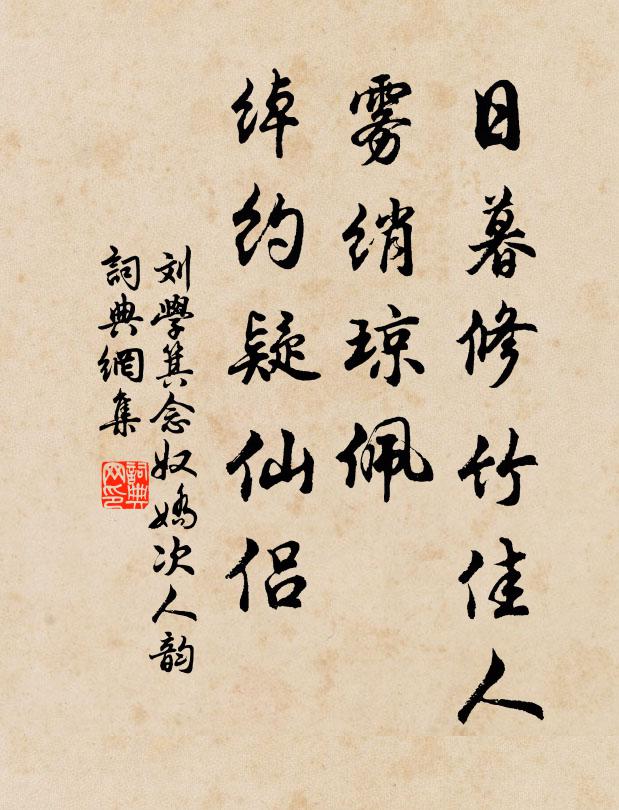 日暮修竹佳人
雾绡琼佩
绰约疑仙侣
刘學箕念奴嬌次人韵
詞典網集
詞典
网印